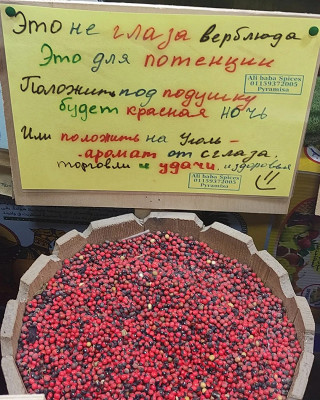 Это не глаза верблюда
Это для потенции
Ali baba Spices
01159372005
Pyramisa
Положить под подушку
будет красная ночь
Или положить на Уголь -
- аромат от сглаза,
торговли и удачи, и здоровья
Ali baba Spices
01159372005
Pyramisa